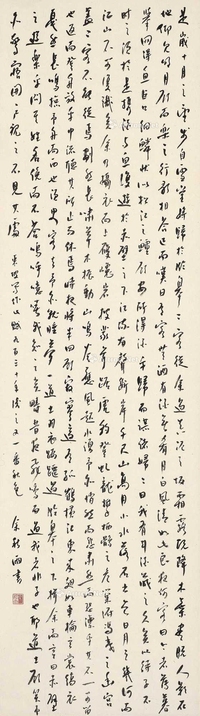 是歲十月之望步自雪堂將歸於臨皋二客從余過黃泥之坂霜露既降木葉盡脫人影在
地仰見明月顧而樂之行歌相答已而嘆曰有客無酒有酒無肴月白風清如此良夜何客曰今者薄暮
舉網得魚巨口細鱗狀如松江之鱸顧安所得酒乎歸而謀諸婦婦曰我有斗酒藏之久矣以待子不
時之須於是攜酒與魚復遊於赤壁之下江流有聲斷岸千尺山高月小水落石出曾日月之幾何而
江山不可復識矣余乃攝衣而上履巉岩披蒙茸踞虎豹登虬龍攀栖鶻之危巢俯馮夷之幽宮
蓋二客不能從焉劃然長嘯草木振動山鳴谷應風起水湧余亦悄然而悲肅然而恐凜乎其不可留
也返而登舟放乎中流聽其所止而休焉時夜將半四顧寂寥適有孤鶴橫江東來翅如車輪玄裳縞衣
戛然長鳴掠余舟而西也須臾客去余亦就睡夢一道士羽衣蹁躚過臨皋之下揖余而言曰赤壁
之遊樂乎問其姓名俯而不答嗚呼噫嘻我知之矣疇昔之夜飛鳴而過我者非子也耶道士顧笑余
亦驚寤開戶視之不見其處 東坡寫作此賦九百三十年後之 秋色 余秋雨書